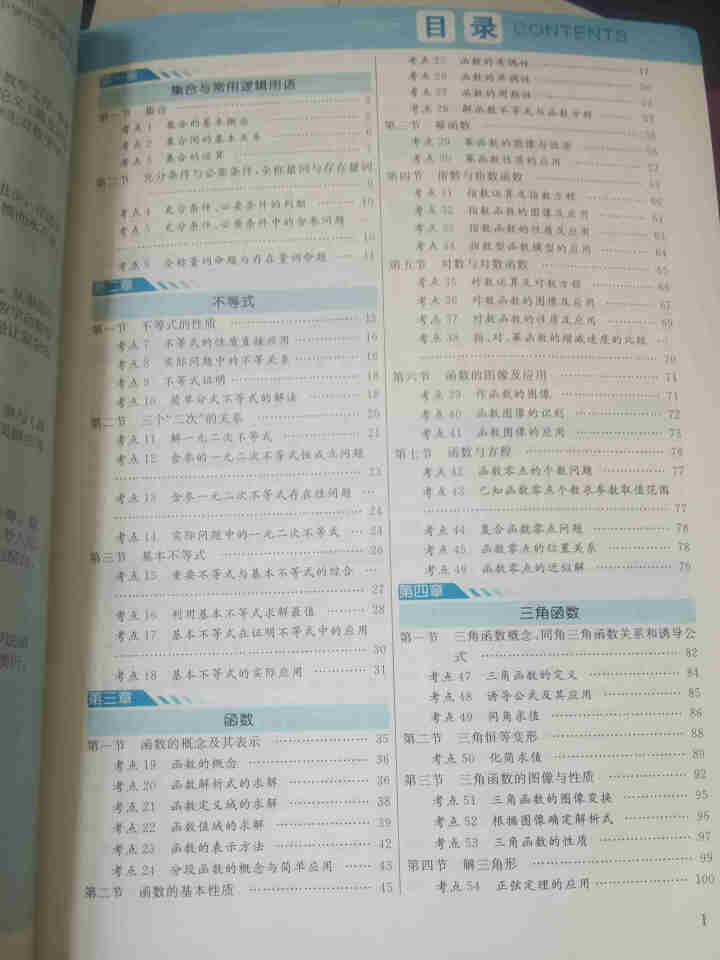 目录 CONTENTS
第一章
集合与常用逻辑用语
第一节 集合
考点1 集合的基本概念
考点2 集合间的基本关系
考点3 集合的运算
第二节 充分条件与必要条件、全称量词与存在量词
考点4 充分条件、必要条件的判断 10
考点5 充分条件、必要条件中的含参问题
10
考点6 全称量词命题与存在量词命题 11
第二章
不等式
第一节 不等式的性质 15
考点7 不等式的性质直接应用 16
考点8 实际问题中的不等关系 16
考点9 不等式证明 18
考点10 简单分式不等式的解法 18
第二节 三个“二次”的关系 20
考点11 解一元二次不等式 21
考点12 含参的一元二次不等式恒成立问题
23
考点13 含参一元二次不等式存在性问题
24
考点14 实际问题中的一元二次不等式 24
第三节 基本不等式 26
考点15 重要不等式与基本不等式的综合
27
考点16 利用基本不等式求解最值 28
考点17 基本不等式在证明不等式中的应用
30
考点18 基本不等式的实际应用 31
第三章
函数
第一节 函数的概念及其表示 35
考点19 函数的概念 36
考点20 函数解析式的求解 36
考点21 函数定义域的求解 38
考点22 函数值域的求解 39
考点23 函数的表示方法 42
考点24 分段函数的概念与简单应用 43
第二节 函数的基本性质 45
考点25 函数的奇偶性 47
考点26 函数的单调性
考点27 函数的周期性
考点28 解函数不等式与函数方程
第三节 幂函数
考点29 幂函数的图像与性质
考点30 幂函数性质的应用
第四节 指数与指数函数
考点31 指数运算及指数方程
考点32 指数函数的图像及应用 61
考点33 指数函数的性质及应用 63
考点34 指数型函数模型的应用 64
第五节 对数与对数函数 65
考点35 对数运算及对数方程 66
考点36 对数函数的图像及应用 67
考点37 对数函数的性质及应用 69
考点38 指、对、幂函数的增减速度的比较
70
第六节 函数的图像及应用 71
考点39 作函数的图像 71
考点40 函数图像的识别 72
考点41 函数图像的应用 73
第七节 函数与方程 76
考点42 函数零点的个数问题 77
考点43 已知函数零点个数求参数取值范围
77
考点44 复合函数零点问题 78
考点45 函数零点的位置关系 78
考点46 函数零点的近似解 79
第四章
三角函数
第一节 三角函数概念、同角三角函数关系和诱导公
式 82
考点47 三角函数的定义 84
考点48 诱导公式及其应用 85
考点49 同角求值 86
第二节 三角恒等变形 88
考点50 化简求值 89
第三节 三角函数的图像与性质 92
考点51 三角函数的图像变换 95
考点52 根据图像确定解析式 96
考点53 三角函数的性质 97
第四节 解三角形 99
考点54 正弦定理的应用 100
1